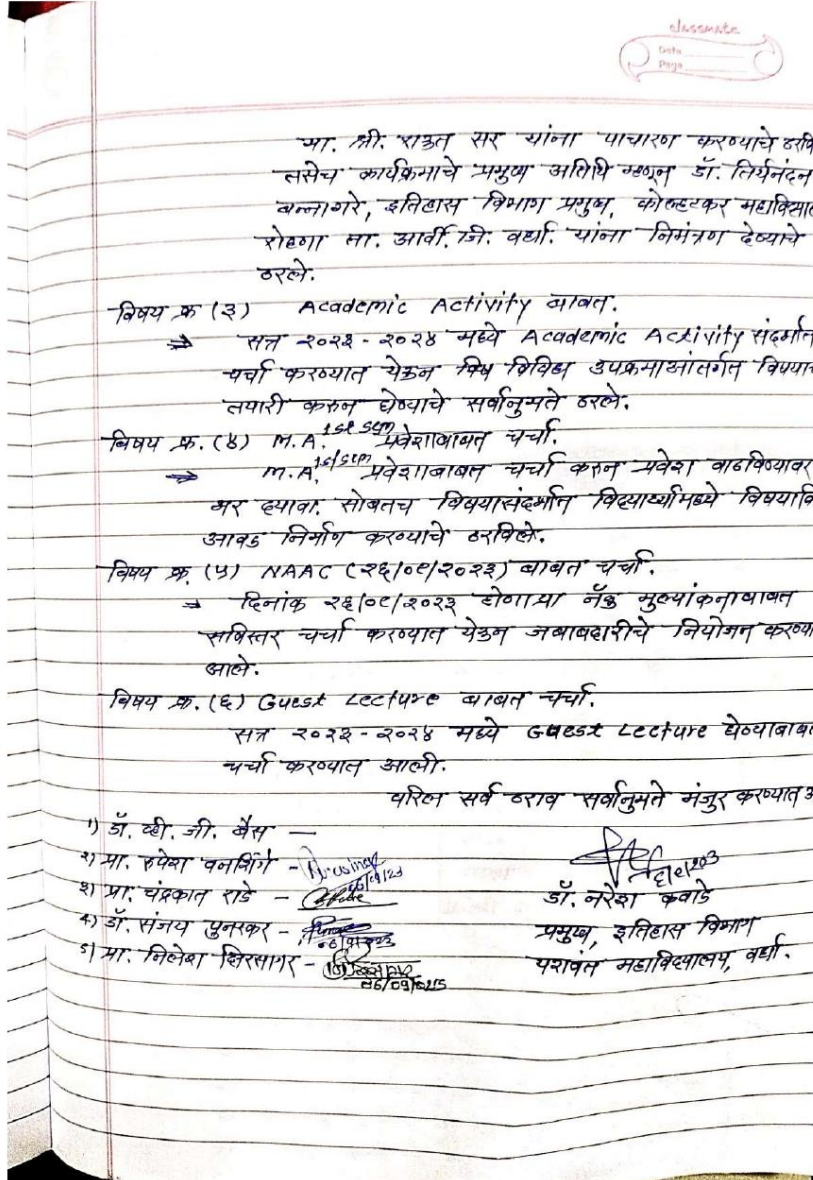 classmate
Date
Page
मा. श्री. राऊत सर यांना पाचारण करण्याचे ठरवि
तसेच कार्यक्रमाचे प्रमुख अतिथि म्हणून डॉ. तिर्थनंदन
बन्नागरे, इतिहास विभाग प्रमुख, कोल्हटकर महाविद्याल
रोहणा ता. आर्वी. जि. वर्धा. यांना निमंत्रण देण्याचे
ठरले.
विषय क्र (३) Academic Activity बाबत.
⇒ सत्र २०२३-२०२४ मध्ये Academic Activity संदर्भात
चर्चा करण्यात येऊन विविध उपक्रमाअंतर्गत विषया
तयारी करुन घेण्याचे सर्वानुमते ठरले.
विषय क्र. (४) M.A. 1st sem प्रवेशाबाबत चर्चा.
⇒ M.A. 1st sem प्रवेशाबाबत चर्चा करुन प्रवेश वाढविण्यावर
भर द्यावा. सोबतच विषयासंदर्भात विद्यार्थ्यामध्ये विषयावि
आवड निर्माण करण्याचे ठरविले.
विषय क्र. (५) NAAC (२६/०९/२०२३) बाबत चर्चा.
⇒ दिनांक २६/०९/२०२३ होणाऱ्या नॅक मुल्यांकनाबाबत
सविस्तर चर्चा करण्यात येऊन जबाबदारीचे नियोजन करण्या
आले.
विषय क्र. (६) Guest Lecture बाबत चर्चा.
सत्र २०२३-२०२४ मध्ये Guest Lecture घेण्याबाब
चर्चा करण्यात आली.
वरिल सर्व ठराव सर्वानुमते मंजुर करण्यात आ
१) डॉ. व्ही. जी. बैस —
२) प्रा. रुपेश वनशिंगे -
३) प्रा. चंद्रकात राडे -
४) डॉ. संजय पुनरकर -
५) प्रा. निलेश क्षिरसागर -
डॉ. नरेश कवाडे
प्रमुख, इतिहास विभाग
यशवंत महाविद्यालय, वर्धा.